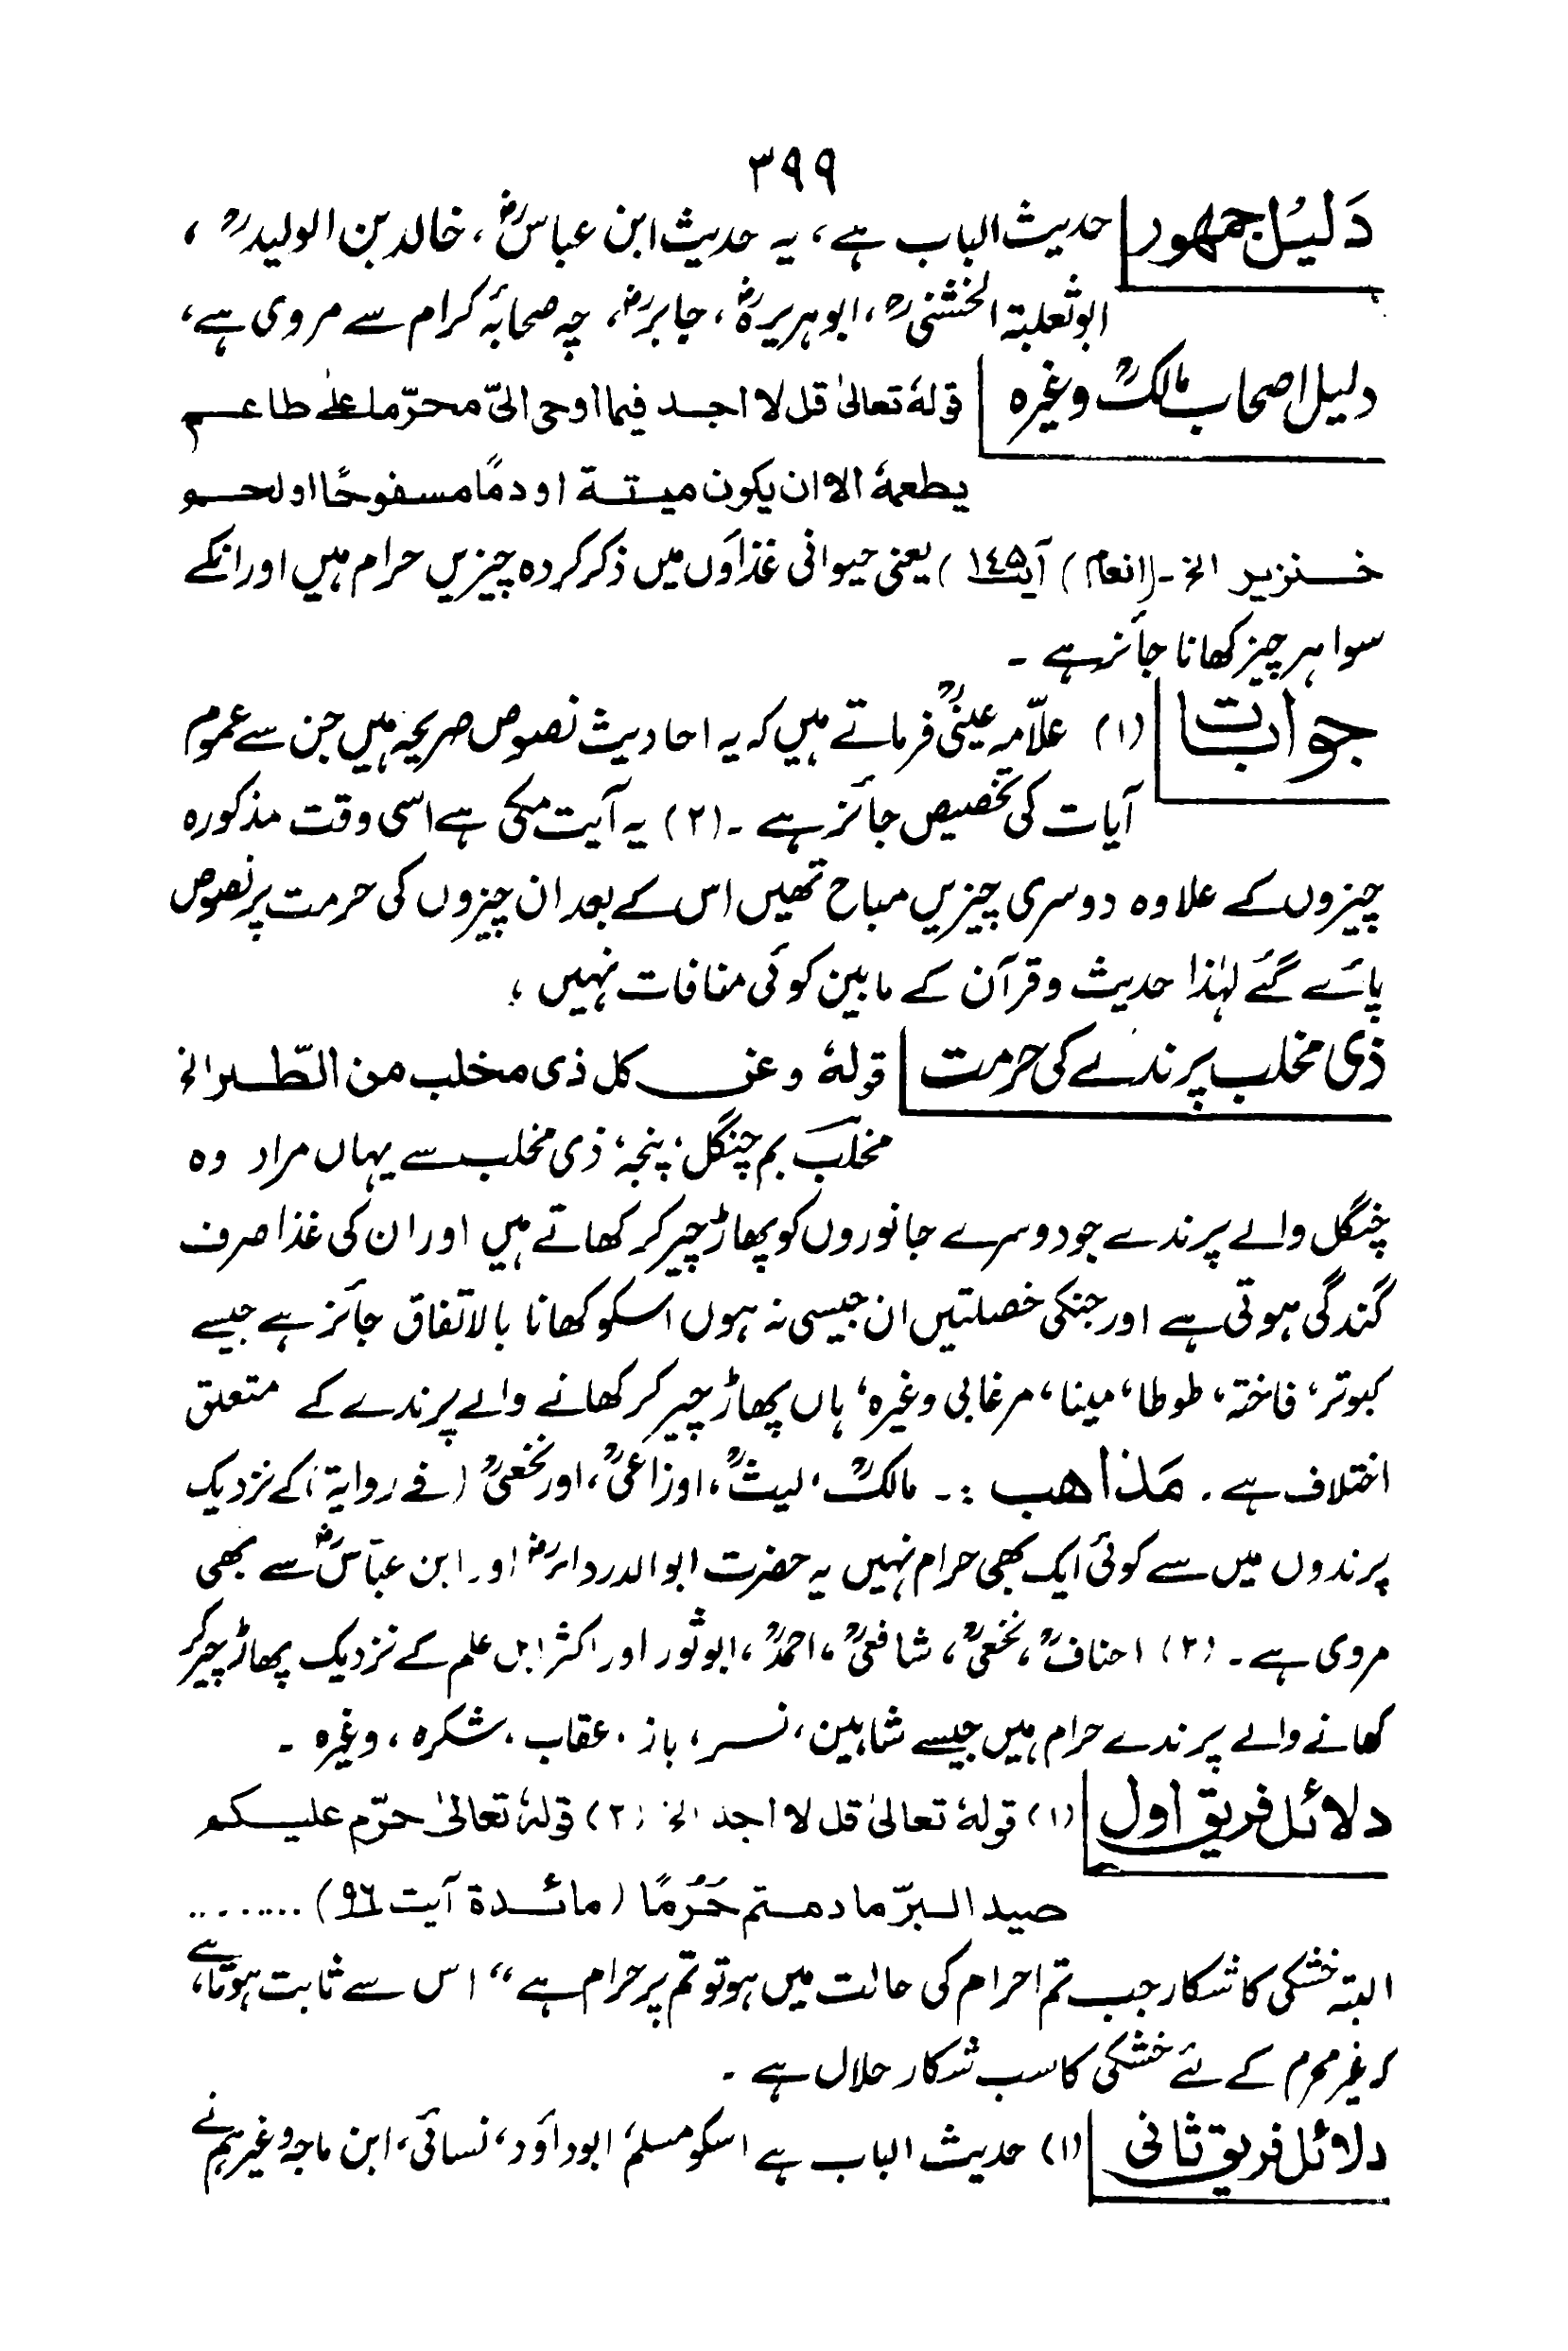 ۳۹۹
دَلیُل جمھور حدیث الباب ہے، یہ حدیث ابن عباسؓ، خالد بن الولیدؓ،
ابو ثعلبۃ الخشنیؓ، ابو ہریرہؓ، جابرؓ، چھ صحابۂ کرام سے مروی ہے،
دلیل اصحاب مالکؒ وغیرہ قولہٗ تعالیٰ قل لا اجد فیما اوحی الیّ محرّما علیٰ طاعم
یطعمہٗ الا ان یکون میتة او دمًا مسفوحًا او لحم
خنزیر الخ۔ (انعام) آیت ۱٤۵) یعنی حیوانی غذاؤں میں ذکر کردہ چیزیں حرام ہیں اور انکے
سوا ہر چیز کھانا جائز ہے ۔
جوابات (۱) علّامہ عینیؒ فرماتے ہیں کہ یہ احادیث نصوص صریحہ ہیں جن سے عموم
آیات کی تخصیص جائز ہے ۔ (۲) یہ آیت مکی ہے اسی وقت مذکورہ
چیزوں کے علاوہ دوسری چیزیں مباح تھیں اس کے بعد ان چیزوں کی حرمت پر نصوص
پائے گئے لہٰذا حدیث و قرآن کے مابین کوئی منافات نہیں ؛
ذی مخلب پرندے کی حرمت قولہٗ وعن کل ذی مخلب من الطّیر الخ
مخلب بم چنگل، پنجہ، ذی مخلب سے یہاں مراد وہ
چنگل والے پرندے جو دوسرے جانوروں کو پھاڑ چیر کر کھاتے ہیں اور ان کی غذا صرف
گندگی ہوتی ہے اور جنکی خصلتیں ان جیسی نہ ہوں اسکو کھانا بالاتفاق جائز ہے جیسے
کبوتر، فاختہ، طوطا، مینا، مرغابی وغیرہ، ہاں پھاڑ چیر کر کھانے والے پرندے کے متعلق
اختلاف ہے ۔ مَذاھب :۔ مالکؒ، لیثؒ، اوزاعیؒ، اور نخعیؒ (فے روایة) کے نزدیک
پرندوں میں سے کوئی ایک بھی حرام نہیں یہ حضرت ابوالدرداءؓ اور ابن عباسؓ سے بھی
مروی ہے ۔ (۲) احنافؒ، نخعیؒ، شافعیؒ، احمدؒ، ابو ثور اور اکثر اہل علم کے نزدیک پھاڑ چیر کر
کھانے والے پرندے حرام ہیں جیسے شاہین، نسر، باز، عقاب، شکرہ، وغیرہ ۔
دلائل فریق اول (۱) قولہٗ تعالیٰ قل لا اجد الخ (۲) قولہٗ تعالیٰ حرّم علیکم
صید البرّ ما دمتم حُرُمًا (مائدة آیت ۹٦) .......
البتہ خشکی کا شکار جب تم احرام کی حالت میں ہو تو تم پر حرام ہے“ اس سے ثابت ہوتا ہے،
کہ غیر محرم کے لئے خشکی کا سب شکار حلال ہے ۔
دلائل فریق ثانی (۱) حدیث الباب ہے اسکو مسلم، ابوداؤد، نسائی، ابن ماجہ وغیرہم نے